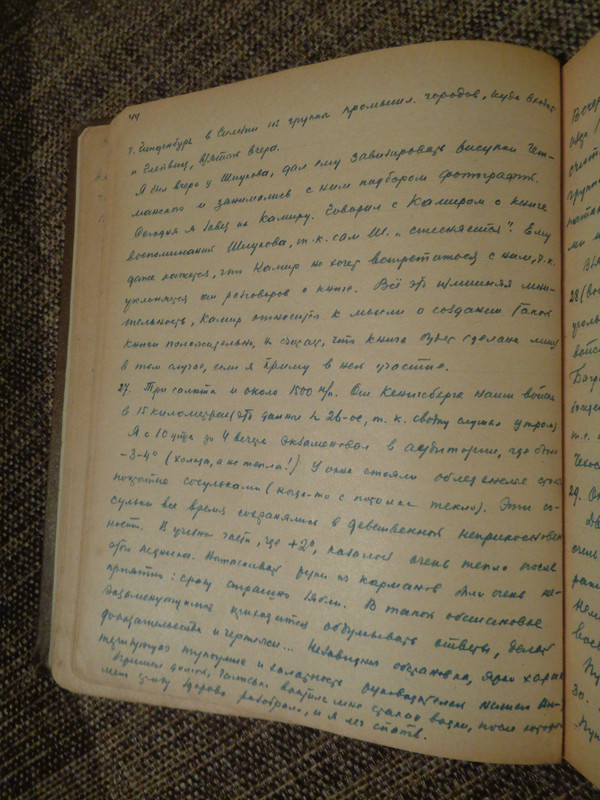 44
г. Гинденбург в Силезии из группы промышл. городов, куда входят
и Глейвиц, взятая вчера.
Я был вчера у Шмукова, дал ему завизировать выписки Гет-
манского и занимались с ним подбором фотографий.
Сегодня я на Камиру. Говорил с Камиром о книге
воспоминаний Шмукова, т.к. сам Ш. "стесняется". Ему
даже кажется, что Камир не хочет встретиться с ним, т.к.
уклоняется от разговоров о книге. Всё это излишняя мни-
тельность, Камир относится к мысли о создании такой
книги положительно, и считает, что книга будет сделана лишь
в том случае, если я приму в ней участие.
27. Три салюта и около 1500 н/п. От Кенигсберга наши войска
в 15 километрах (это данные на 26-ое, т.к. сводку слушал утром)
Я с 10 утра до 4 вечера экзаменовал в аудитории, где было
-3-4° (холода, а не тепла!) У окна стояли обледенелые
покрытые сосульками (когда-то с потолка текло). Эти со-
сульки всё время сохранялись в девственной неприкосновен-
ности. В учебной части, где +2°, казалось очень тепло после
этого ледника. Вытаскивать руки из карманов было очень не-
приятно: сразу страшно зябли. В такой обстановке
экзаменующимся приходится обдумывать ответы, делать
доказательства и чертежи... Незавидная обстановка, ярко харак-
теризующая тупоумие и халатность руководителей нашего
долгов, вкатили мне стакан водки, после которой
меня сразу здорово разобрало, и я лег спать.